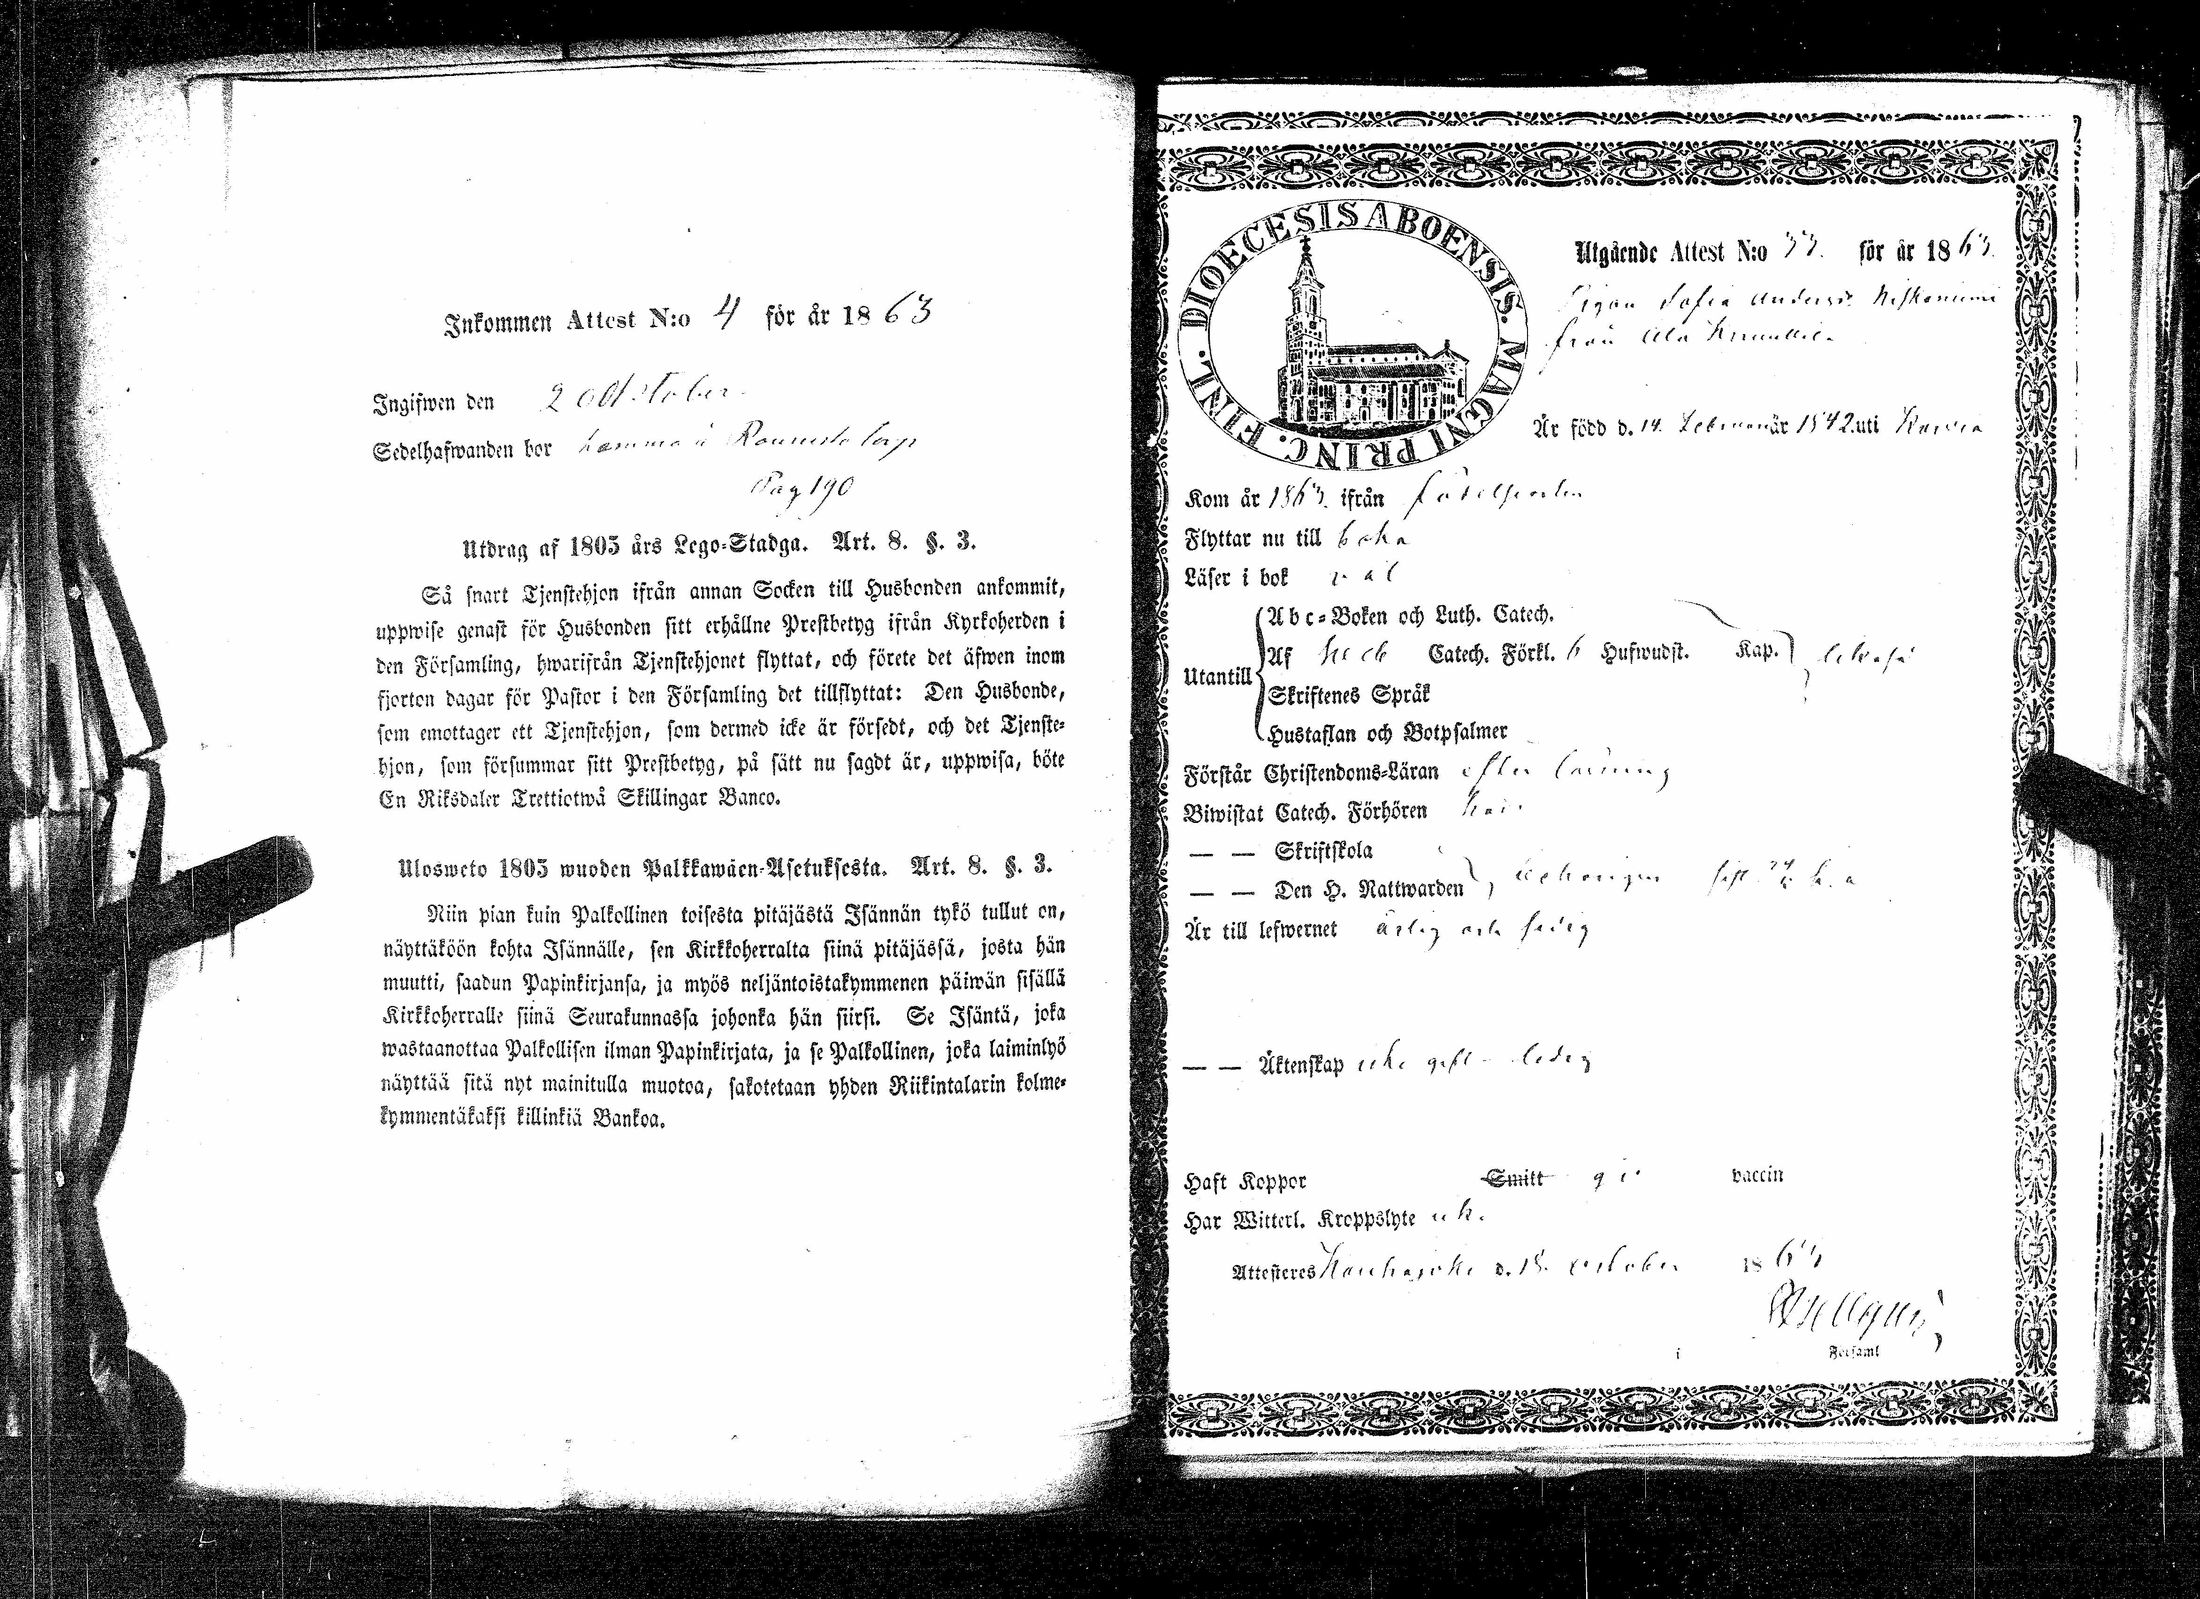 Inkommen Attest N:o 4 för år 1863
Ingifwen den 2 Oktober
Sedelhafwanden bor
Pag 190
Utdrag af 1805 års Lego-Stadga. Art. 8. §. 3.
Så snart Tjenstehjon ifrån annan Socken till Husbonden ankommit,
uppwise genast för Husbonden sitt erhållne Prestbetyg ifrån Kyrkoherden i
den Församling, hwarifrån Tjenstehjonet flyttat, och förete det äfwen inom
fjorton dagar för Pastor i den Församling det tillflyttat: Den Husbonde,
som emottager ett Tjenstehjon, som dermed icke är försedt, och det Tjenste-
hjon, som försummar sitt Prestbetyg, på sätt nu sagdt är, uppwisa, böte
En Riksdaler Trettiotwå Skillingar Banco.
Ulosweto 1805 wuoden Palkkawäen-Asetuksesta. Art. 8. §. 3.
Niin pian kuin Palkollinen toisesta pitäjästä Isännän tykö tullut on,
näyttäköön kohta Isännälle, sen Kirkkoherralta siinä pitäjässä, josta hän
muutti, saadun Papinkirjansa, ja myös neljäntoistakymmenen päiwän sisällä
Kirkkoherralle siinä Seurakunnassa johonka hän siirsi. Se Isäntä, joka
wastaanottaa Palkollisen ilman Papinkirjata, ja se Palkollinen, joka laiminlyö
näyttää sitä nyt mainitulla muotoa, sakotetaan yhden Riikintalarin kolme-
kymmentäkaksi killinkiä Bankoa.
DIOECESIS ABOENSIS. MAGNI PRINC. FINL.
Utgående Attest N:o 33. för år 1863.
Pigan Sofia Anders
från Ala
Är född d. 14 Februari år 1842 uti
Kom år 1863. ifrån födelseorten
Flyttar nu till
Läser i bok väl
Utantill
Abc-Boken och Luth. Catech.
Af Catech. Förkl. 6 Hufwudst. Kap.
Skriftenes Språk
Hustaflan och Botpsalmer
Förstår Christendoms-Läran efter
Biwistat Catech. Förhören
— — Skriftskola
— — Den H. Nattwarden
Är till lefwernet ärlig och
— — Äktenskap icke gift ledig
Haft Koppor Smitt vaccin
Har Witterl. Kroppslyte
Attesteres d. 18. October 1863
i Församl